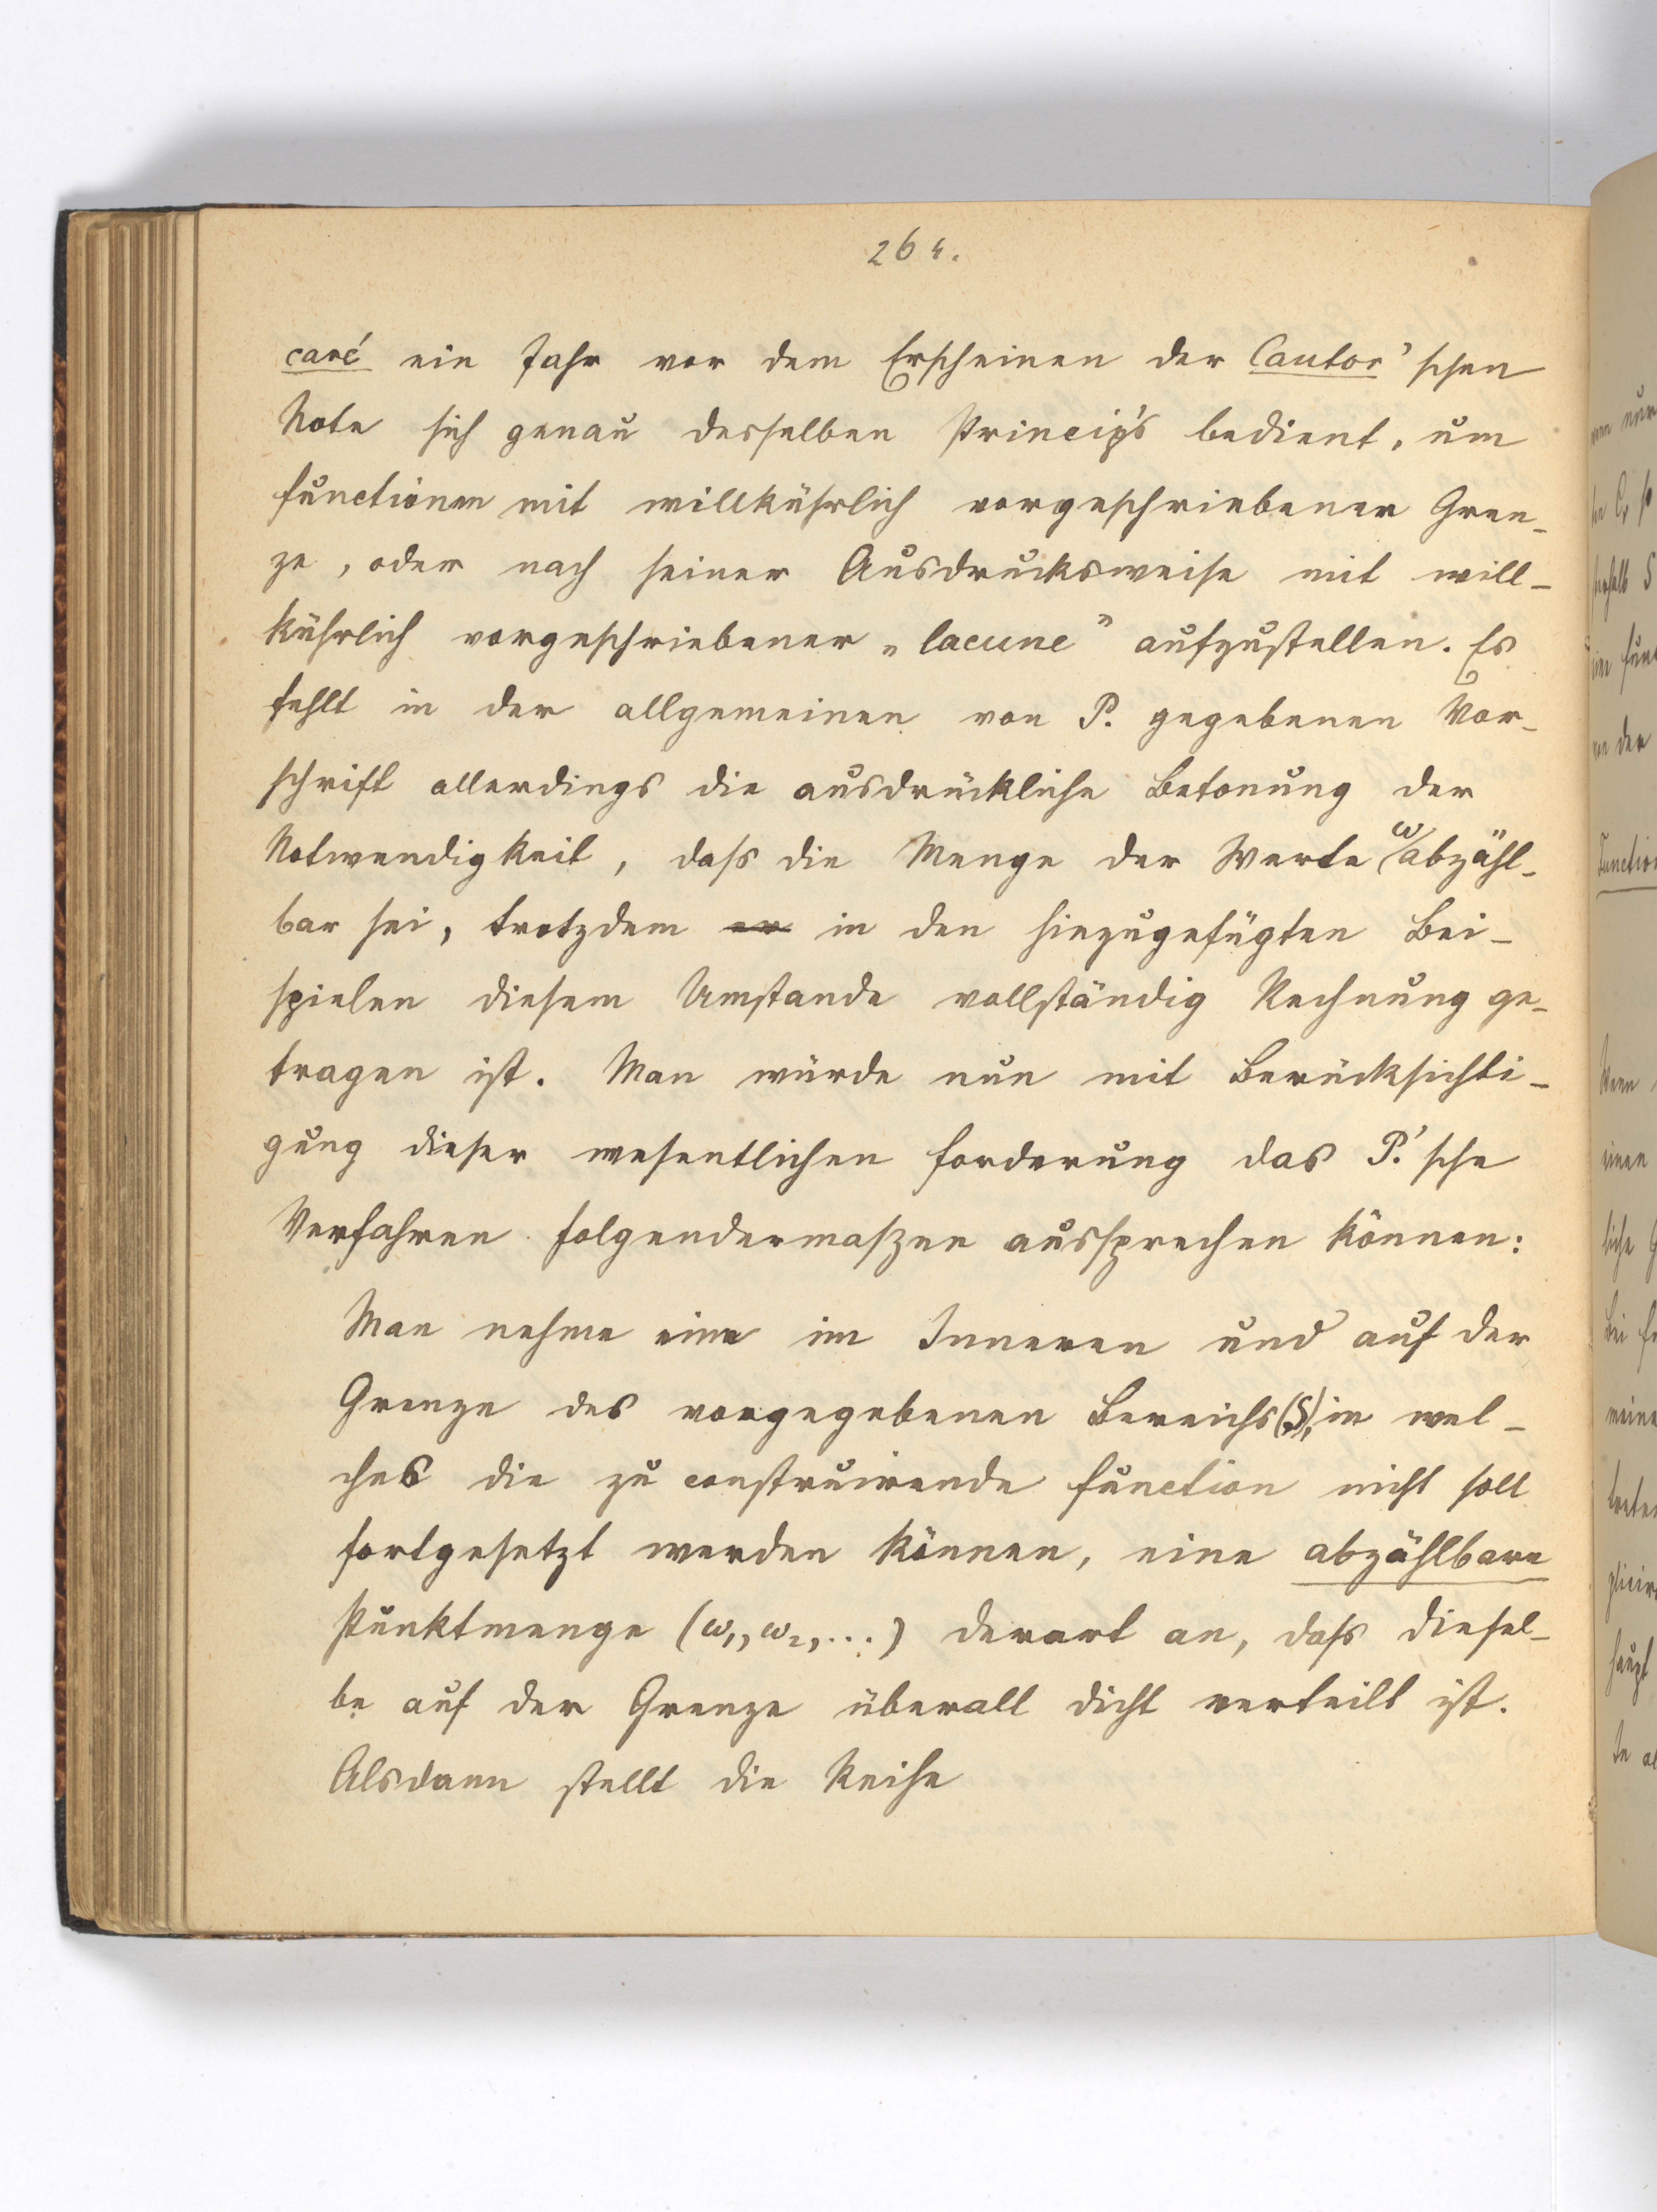 264.
caré ein Jahr vor dem Erscheinen der Cantor'schen
Note sich genau desselben Princip's bedient, um
Functionen mit willkührlich vorgeschriebener Gren-
ze, oder nach seiner Ausdrucksweise mit will-
kührlich vorgeschriebener „lacune” aufzustellen. Es
fehlt in der allgemeinen von P. gegebenen Vor-
schrift allerdings die ausdrückliche Betonung der
Notwendigkeit, dass die Menge der Werte ω abzähl-
bar sei, trotzdem er in den hinzugefügten Bei-
spielen diesem Umstande vollständig Rechnung ge-
tragen ist. Man würde nun mit Berücksichti-
gung dieser wesentlichen Forderung das P.'sche
Verfahren folgendermaszen aussprechen können:
Man nehme eine im Inneren und auf der
Grenze des vorgegebenen Bereichs (S), in wel-
ches die zu construirende Function nicht soll
fortgesetzt werden können, eine abzählbare
Punktmenge (ω₁, ω₂, ...) derart an, dass diesel-
be auf der Grenze überall dicht verteilt ist.
Alsdann stellt die Reihe
nur
der
einen